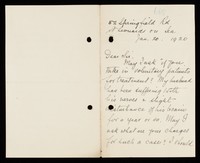 Springfield Rd
St Leonards on Sea
Jan. 20. 1920
Dear Sir
May I ask if you
take in voluntary patients
for treatment? My husband
has been suffering with
his nerves & slight
disturbance of his brain
for a year or so. May I
ask what are your charges
for such a case? I should